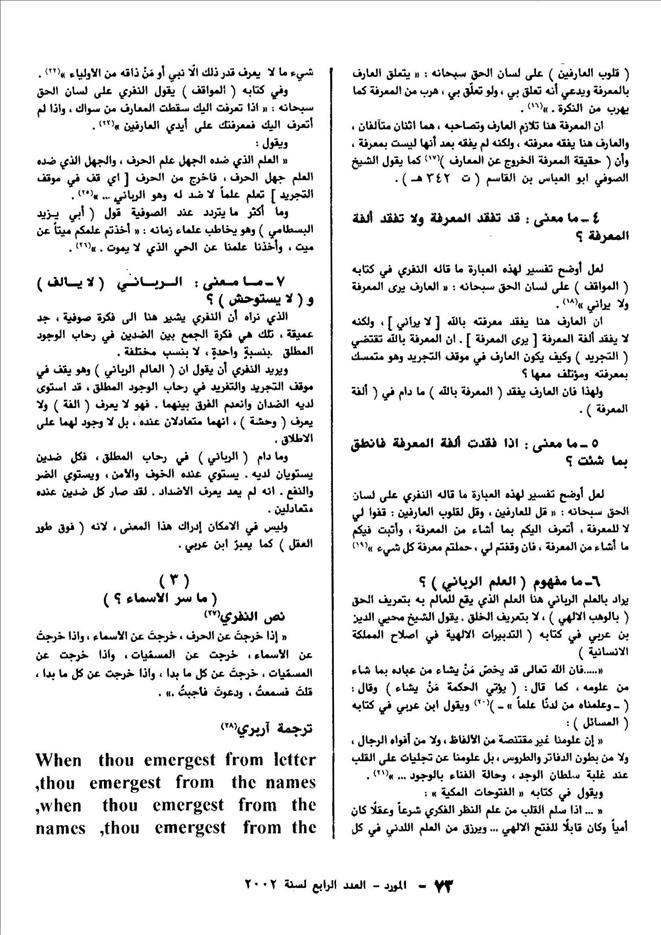 ( قلوب العارفين ) على لسان الحق سبحانه : « يتعلق العارف
بالمعرفة ويدعي أنه تعلق بي ، ولو تعلّق بي ، هرب من المعرفة كما
يهرب من النكرة . » (١٦) .
ان المعرفة هنا تلازم العارف وتصاحبه ، هما اثنان متآلفان ،
والعارف هنا يفقه معرفته ، ولكنه لم يفقه بعد أنها ليست بمعرفة ،
وأن ( حقيقة المعرفة الخروج عن المعارف ) (١٧) كما يقول الشيخ
الصوفي ابو العباس بن القاسم ( ت ٣٤٢ هـ ) .
٤ ـ ما معنى : قد تفقد المعرفة ولا تفقد ألفة
المعرفة ؟
لعل أوضح تفسير لهذه العبارة ما قاله النفري في كتابه
( المواقف ) على لسان الحق سبحانه : « العارف يرى المعرفة
ولا يراني » (١٨) .
ان العارف هنا يفقد معرفته بالله [ لا يراني ] ، ولكنه
لا يفقد ألفة المعرفة [ يرى المعرفة ] . ان المعرفة بالله تقتضي
( التجريد ) وكيف يكون العارف في موقف التجريد وهو متمسك
بمعرفته ومؤتلف معها ؟
ولهذا فان العارف يفقد ( المعرفة بالله ) ما دام في ( ألفة
المعرفة ) .
٥ ـ ما معنى : اذا فقدت ألفة المعرفة فانطق
بما شئت ؟
لعل أوضح تفسير لهذه العبارة ما قاله النفري على لسان
الحق سبحانه : « قل للعارفين ، وقل لقلوب العارفين : قفوا لي
لا للمعرفة ، أتعرف اليكم بما أشاء من المعرفة ، وأثبت فيكم
ما أشاء من المعرفة ، فان وقفتم لي ، حملتم معرفة كل شيء » (١٩)
٦ ـ ما مفهوم ( العلم الرباني ) ؟
يراد بالعلم الرباني هنا العلم الذي يقع للعالم به بتعريف الحق
( بالوهب الالهي ) ، لا بتعريف الخلق . يقول الشيخ محيي الدين
بن عربي في كتابه ( التدبيرات الالهية في اصلاح المملكة
الانسانية )
«.....فان الله تعالى قد يخصّ مَنْ يشاء من عباده بما شاء
من علومه ، كما قال : ( يؤتي الحكمة مَنْ يشاء ) وقال :
( ـ وعلمناه من لدنّا علماً » ـ ) (٢٠) ويقول ابن عربي في كتابه
( المسائل ) :
« إن علومنا غير مقتنصة من الألفاظ ، ولا من أفواه الرجال ،
ولا من بطون الدفاتر والطروس ، بل علومنا عن تجليات على القلب
عند غلبة سلطان الوجد ، وحالة الفناء بالوجود ... » (٢١) .
ويقول في كتابه « الفتوحات المكية » :
« ... اذا سلم القلب من علم النظر الفكري شرعاً وعقلًا كان
أمياً وكان قابلًا للفتح الالهي ... ويرزق من العلم اللدني في كل
شيء ما لا يعرف قدر ذلك الّا نبي أو مَنْ ذاقه من الأولياء » (٢٢) .
وفي كتابه ( المواقف ) يقول النفري على لسان الحق
سبحانه : « اذا تعرفت اليك سقطت المعارف من سواك ، واذا لم
أتعرف اليك فمعرفتك على أيدي العارفين » (٢٣) .
ويقول :
« العلم الذي ضده الجهل علم الحرف ، والجهل الذي ضده
العلم جهل الحرف ، فاخرج من الحرف [ اي قف في موقف
التجريد ] تعلم علماً لا ضد له وهو الرباني ... » (٢٥) .
وما أكثر ما يتردد عند الصوفية قول ( أبي يزيد
البسطامي ) وهو يخاطب علماء زمانه : « أخذتم علمكم ميتاً عن
ميت ، وأخذنا علمنا عن الحي الذي لا يموت . » (٢٦) .
٧ ـ ما معنى : الرباني ( لا يالف )
و ( لا يستوحش ) ؟
الذي نراه أن النفري يشير هنا الى فكرة صوفية ، جد
عميقة ، تلك هي فكرة الجمع بين الضدين في رحاب الوجود
المطلق .بنسبةٍ واحدةٍ ، لا بنسب مختلفة .
ويريد النفري أن يقول ان ( العالم الرباني ) وهو يقف في
موقف التجريد والتفريد في رحاب الوجود المطلق ، قد استوى
لديه الضدان وانعدم الفرق بينهما . فهو لا يعرف ( الفة ) ولا
يعرف ( وحشة ) ، انهما متعادلان عنده ، بل لا وجود لهما على
الاطلاق .
وما دام ( الرباني ) في رحاب المطلق ، فكل ضدين
يستويان لديه . يستوي عنده الخوف والأمن ، ويستوي الضر
والنفع . انه لم يعد يعرف الأضداد . لقد صار كل ضدين عنده
متعادلين .
وليس في الامكان إدراك هذا المعنى ، لانه ( فوق طور
العقل ) كما يعبرّ ابن عربي .
( ٣ )
( ما سر الأسماء ؟ )
نص النفري (٢٧)
« إذا خرجتَ عن الحرف ، خرجتَ عن الأسماء ، واذا خرجتَ
عن الأسماء ، خرجتَ عن المسمّيات ، واذا خرجت عن
المسمّيات ، خرجتَ عن كل ما بدا ، واذا خرجت عن كل ما بدا ،
قلتَ فسمعتُ ، ودعوتَ فأجبتُ .» .
ترجمة آربري (٢٨)
When thou emergest from letter
,thou emergest from the names
,when thou emergest from the
names ,thou emergest from the
٧٣ - المورد - العدد الرابع لسنة ٢٠٠٢